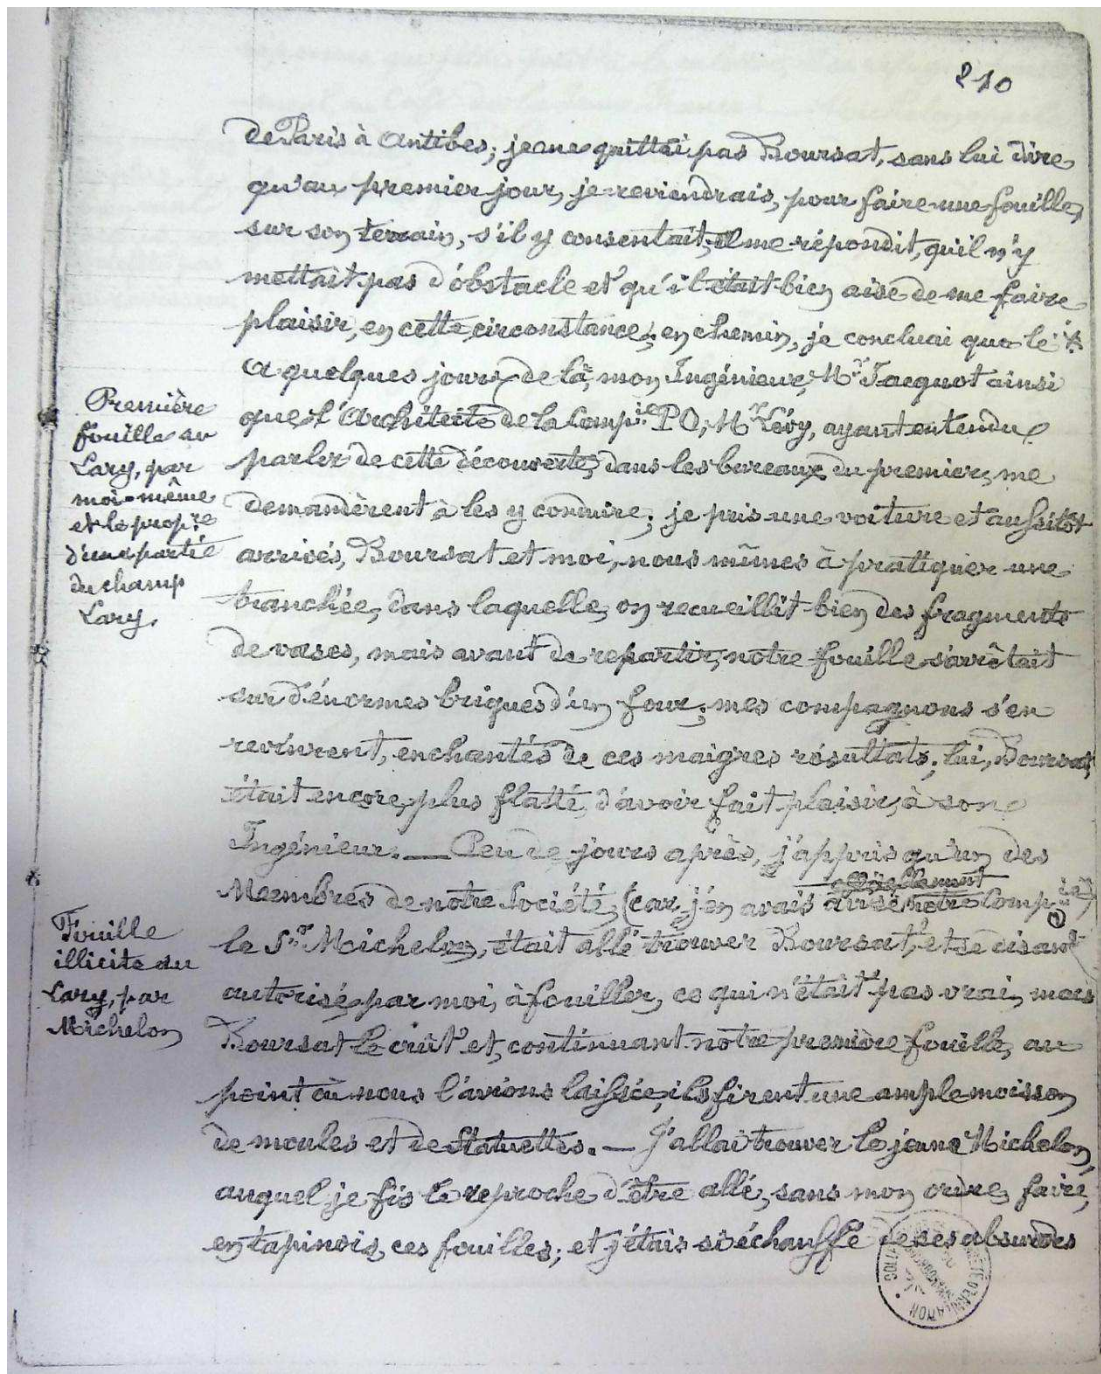 210
de Paris à Antibes; je ne quittai pas Boursat, sans lui dire
qu'au premier jour, je reviendrais, pour faire une fouille,
sur son terrain, s'il y consentait; il me répondit, qu'il n'y
mettait pas d'obstacle et qu'il était bien aise de me faire
plaisir, en cette circonstance; en chemin, je concluai que le
A quelques jours de là, mon Ingénieur, Mr Jacquot ainsi
que l'Architecte de la Compie PO, Mr Lévy, ayant entendu
parler de cette découverte, dans les bureaux du premier, me
demandèrent à les y conduire; je pris une voiture et aussitôt
arrivés, Boursat et moi, nous mîmes à pratiquer une
tranchée, dans laquelle, on recueillit bien des fragments
de vases, mais avant de repartir, notre fouille s'arrêtait
sur d'énormes briques d'un four; mes compagnons s'en
revinrent, enchantés de ces maigres résultats; lui, Boursat,
était encore, plus flatté, d'avoir fait plaisir, à son
Ingénieur. — Peu de jours après, j'appris qu'un des
Membres de notre Société, (car j'en avais avisé notre Compie)
le Sr Michelon, était allé trouver Boursat, et se disant
autorisé, par moi, à fouiller, ce qui n'était pas vrai, mais
Boursat le crût et, continuant notre première fouille, au
point où nous l'avions laissée, ils firent une ample moisson
de moules et de Statuettes. — J'allai trouver le jeune Michelon,
auquel je fis le reproche d'être allé, sans mon ordre, faire,
en tapinois, ces fouilles; et j'étais si échauffé de ses absurdes
Première
fouille au
Lary, par
moi-même
et le propre
d'une partie
du champ
Lary.
Fouille
illicite du
Lary, par
Michelon